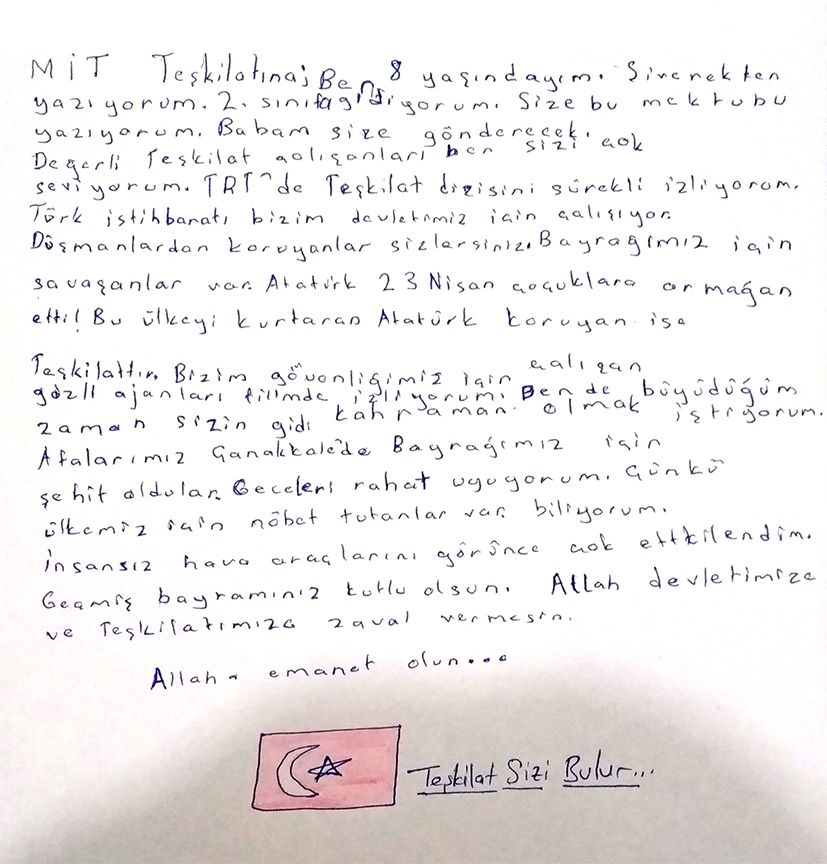 MİT Teşkilatına; Ben 8 yaşındayım. Siverekten
yazıyorum. 2. sınıfa gidiyorum. Size bu mektubu
yazıyorum. Babam size gönderecek.
Değerli Teşkilat çalışanları ben sizi çok
seviyorum. TRT'de Teşkilat dizisini sürekli izliyorum.
Türk istihbaratı bizim devletimiz için çalışıyor.
Düşmanlardan koruyanlar sizlersiniz. Bayrağımız için
savaşanlar var. Atatürk 23 Nisan çocuklara armağan
etti! Bu ülkeyi kurtaran Atatürk koruyan ise
Teşkilattır. Bizim güvenliğimiz için çalışan
gizli ajanları filimde izliyorum. Ben de büyüdüğüm
zaman sizin gidi kahraman olmak istiyorum.
Atalarımız Çanakkale'de Bayrağımız için
şehit oldular. Geceleri rahat uyuyorum. Çünkü
ülkemiz için nöbet tutanlar var biliyorum.
İnsansız hava araçlarını görünce çok ettkilendim.
Geçmiş bayramınız kutlu olsun. Allah devletimize
ve Teşkilatımıza zaval vermesin.
Allah a emanet olun...
Teşkilat Sizi Bulur...